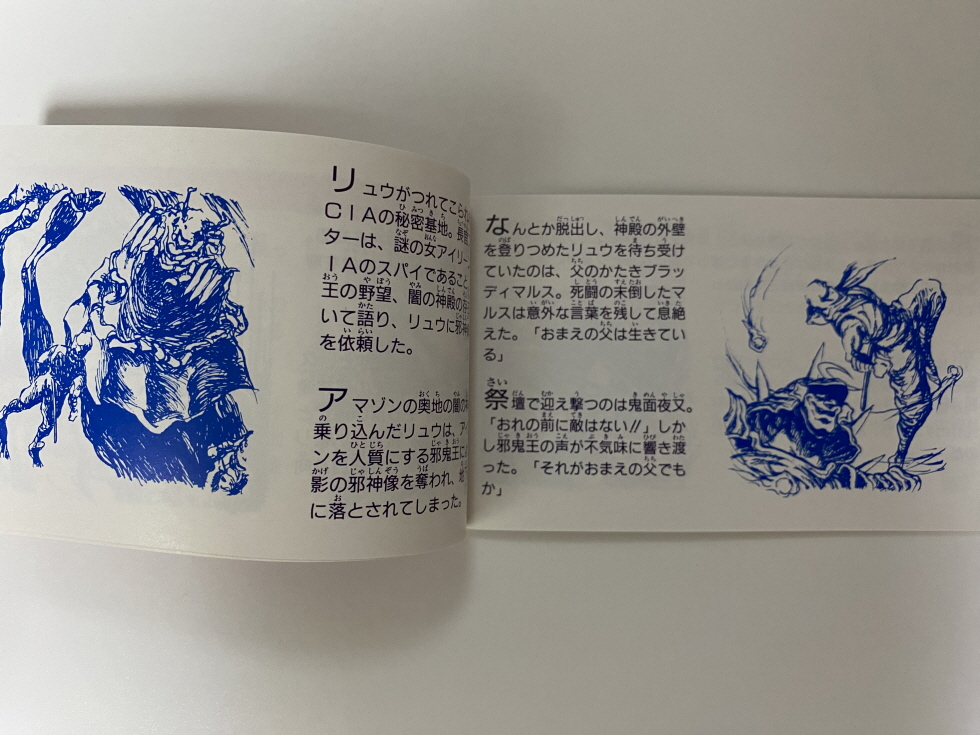 リュウがつれてこられ
CIAの秘密基地。長官
ターは、謎の女アイリー
IAのスパイであること
王の野望、闇の神殿の
いて語り、リュウに邪神
を依頼した。
アマゾンの奥地の闇の
乗り込んだリュウは、ア
ンを人質にする邪鬼王に
影の邪神像を奪われ、地
に落とされてしまった。
なんとか脱出し、神殿の外壁
を登りつめたリュウを待ち受け
ていたのは、父のかたきブラッ
ディマルス。死闘の末倒したマ
ルスは意外な言葉を残して息絶
えた。「おまえの父は生きてい
る」
祭壇で迎え撃つのは鬼面夜叉。
「おれの前に敵はない!!」しか
し邪鬼王の声が不気味に響き渡
った。「それがおまえの父でも
か」